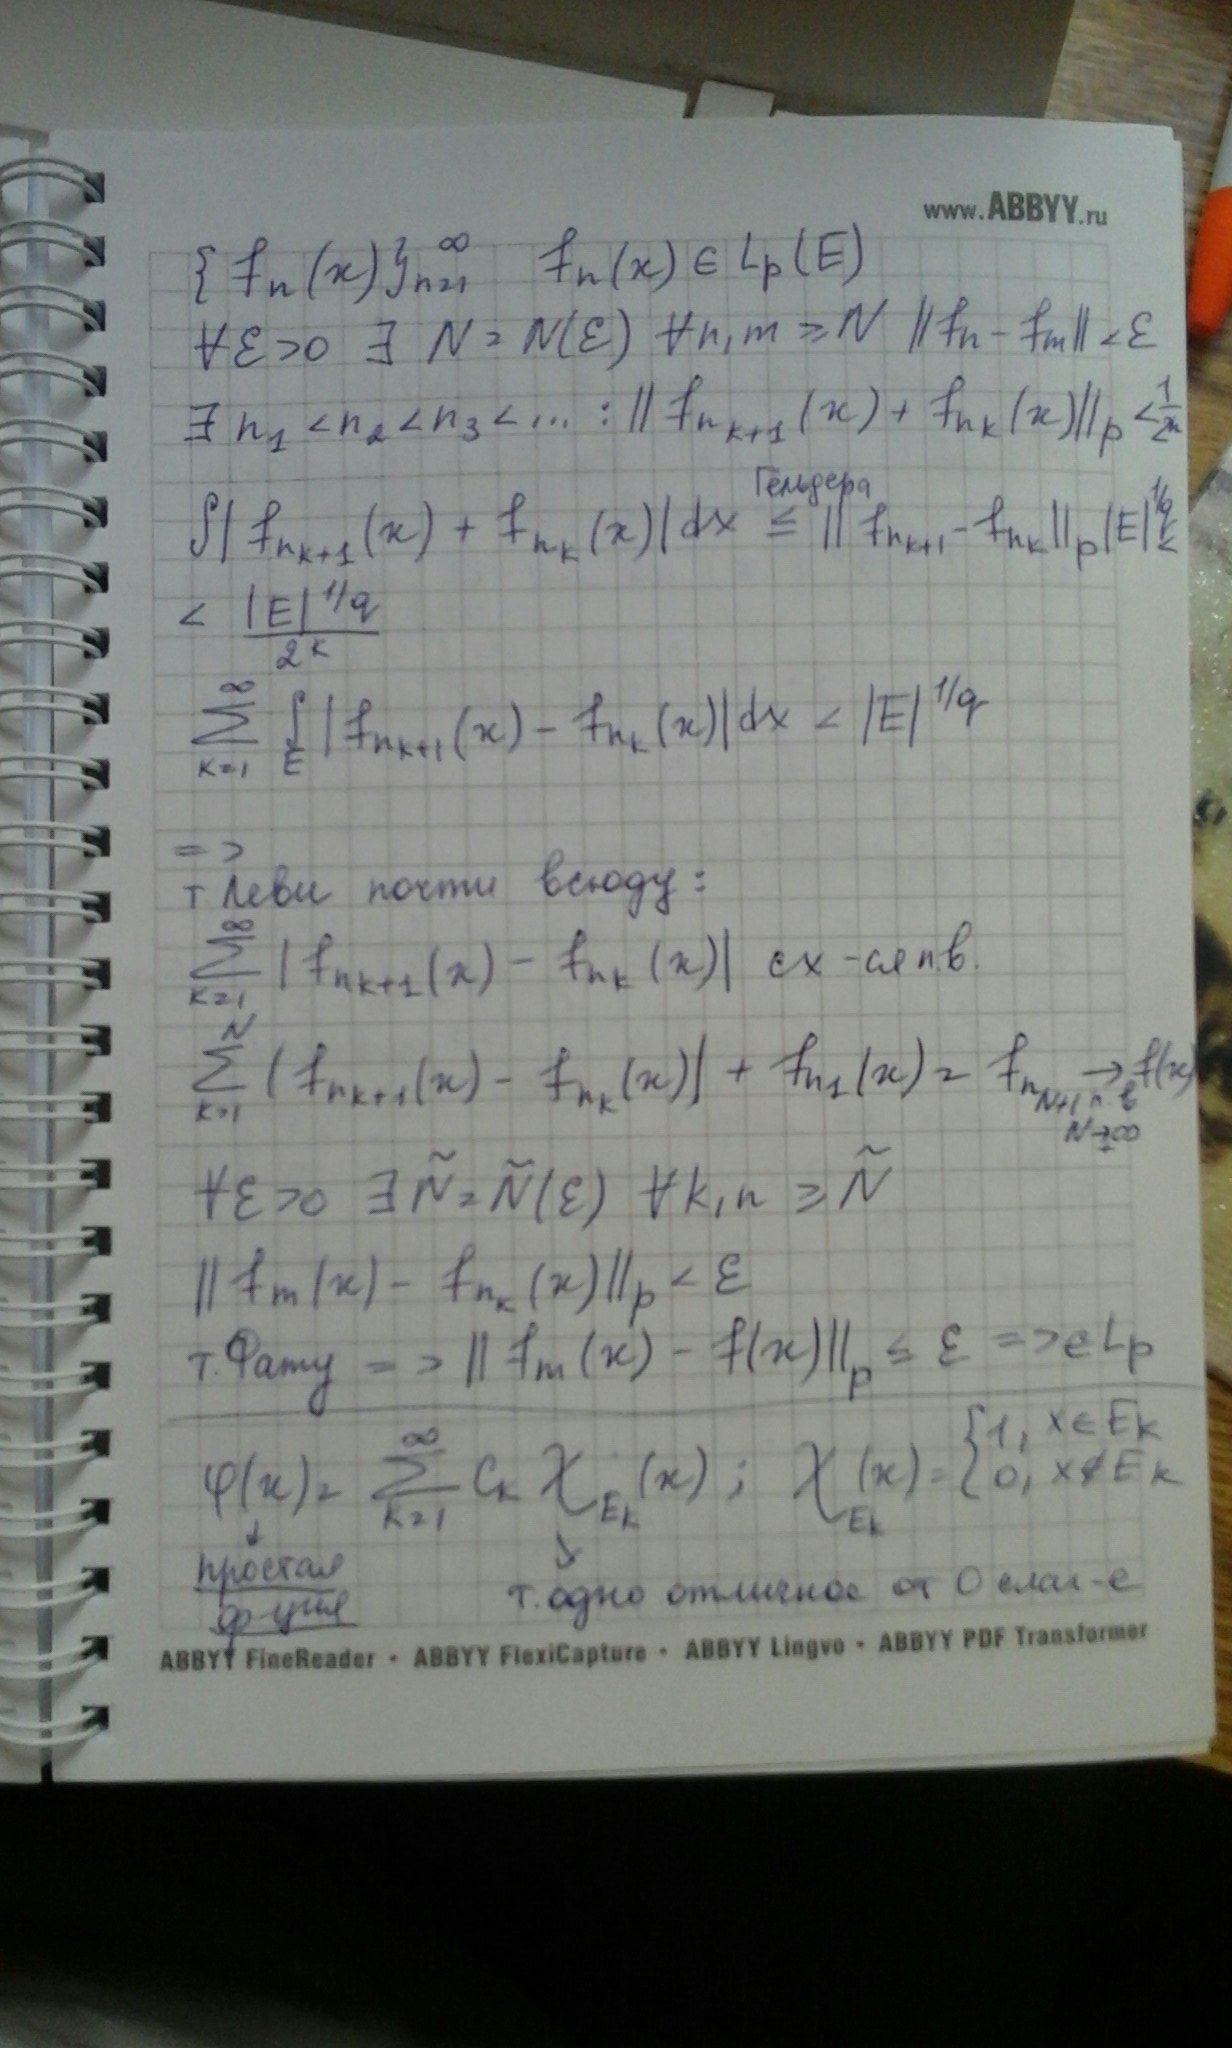 www.ABBYY.ru
{ f_n(x) }_{n=1}^∞ f_n(x) ∈ L_p(E)
∀ε>0 ∃ N = N(ε) ∀n,m ≥ N ||f_n - f_m|| < ε
∃ n_1 < n_2 < n_3 < ... : || f_{n_{k+1}}(x) + f_{n_k}(x)||_p <
Гёльдера
∫| f_{n_{k+1}}(x) + f_{n_k}(x)| dx ≤ || f_{n_{k+1}} - f_{n_k}||_p |E|^{1/q} <
< |E|^{1/q} / 2^k
∑_{k=1}^∞ ∫_E | f_{n_{k+1}}(x) - f_{n_k}(x)| dx < |E|^{1/q}
=>
т Леви почти всюду:
∑_{k=1}^∞ | f_{n_{k+1}}(x) - f_{n_k}(x)| сх-ся п.в.
∑_{k=1}^N ( f_{n_{k+1}}(x) - f_{n_k}(x)| + f_{n_1}(x) = f_{n_{N+1}} → f(x)
п.в
N→∞
∀ε>0 ∃Ñ = Ñ(ε) ∀k,n ≥ Ñ
|| f_m(x) - f_{n_k}(x)||_p < ε
т. Фату => || f_m(x) - f(x)||_p ≤ ε => ∈ L_p
φ(x) = ∑_{k=1}^∞ C_k χ_{E_k}(x) ; χ_{E_k}(x) = { 1, x ∈ E_k
0, x ∉ E_k
простая
ф-ция
т. одно отличное от 0 слаг-е
ABBYY FineReader • ABBYY FlexiCapture • ABBYY Lingvo • ABBYY PDF Transformer